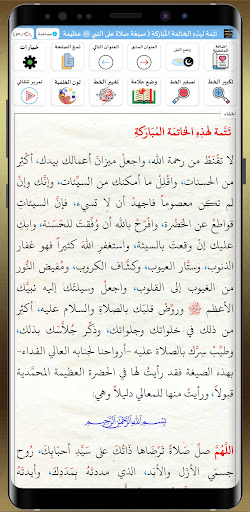 تتمة لهذه الخاتمة المباركة ( صيغة صلاة على النبي ﷺ عظيمة
مساعدة
رجوع
إضافة للمفضلة
وضع الليل
العنوان السابق
العنوان التالي
نسخ الصفحة
خيارات
تكبير الخط
تصغير الخط
وضع علامة
تغيير الخط
لون الخلفية
تمرير تلقائي
إخفاء
تَتمَّة لهَذِهِ الخَاتمَة المُبَارَكَةِ
لا تَقْنَطْ من رحمةِ الله، واجعلْ ميزانَ أعمالك بيدِك، أكثر
من الحسنات، واقْلِلْ ما أمكنك من السيِّئات، وإنَّك وإنْ
لم تكن معصوماً فاجهدْ أن لا تسيء، فإنَّ السيئاتِ
قواطعُ عن الحَضْرة، وافرَحْ بالله أن وُفِّقتَ للحَسَنة، وابك
عليكَ إنْ وقعتَ بالسيئة، واستغفرِ اللهَ كثيراً فهو غفار
الذنوب، وستَّار العيوب، وكشَّاف الكروب، ومُفيض النُّور
من الغيوب إلى القلوب، واجعلْ وسيلتَك إليه نبيَّك
الأعظم ﷺ وروِّضْ قلبَك بالصلاةِ والسلام عليه، أكثر
من ذلك في خلواتك وجلواتك، وذكِّر جُلاَّسَك بذلك،
وطيِّب سِرَّك بالصلاة عليه -أرواحنا لجنابه العالي الفداء-
بهذه الصيغة فقد رأيتُ لها في الحضرة العظيمة المحمَّدية
قبولاً، ورأيتُ منها للمعالي دليلاً وهي:
بِسْمِ اللهِ الرَّحْمٰنِ الرَّحِيْمِ
اللَّهُمَّ صلِّ صلاةً تَرْضَاها ذَاتُكَ عَلَى سَيِّدِ أحبَابِكَ، رُوحِ
جسمي الأزل والأبَد، الذي مددتَهُ بِمَدَدِكَ، وأيدتَهُ